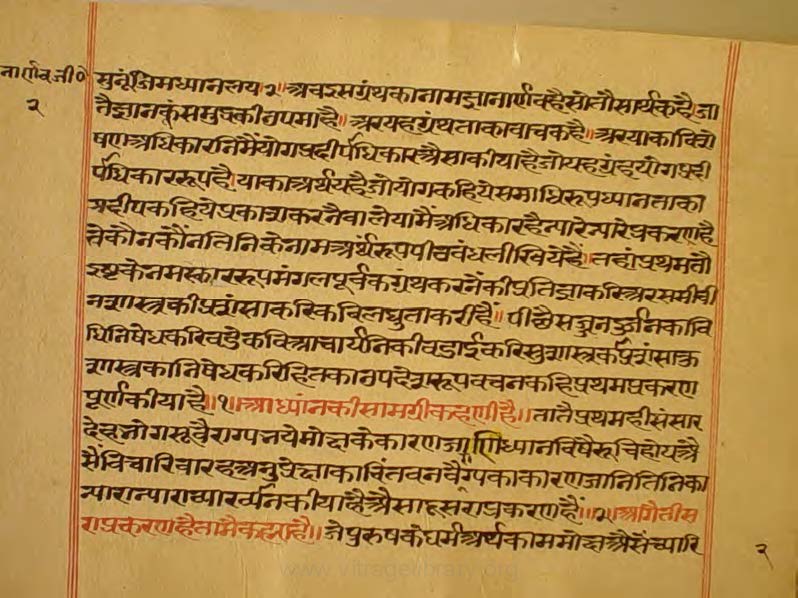 नार्णव जी०
२
सुनूंजिमध्यानलय २॥ अवइसग्रंथकानामज्ञानार्णवहैसोतौसार्थकहै॥जा
तैज्ञानकूंसमुद्रकीउपमाहै॥ अरयहग्रंथताकावाचकहै॥ अरयाकाविशे
षणअधिकारनिमैंयोगप्रदीपाधिकारऔसाकीयाहैजोयहग्रंथयोगप्रदी
पाधिकाररूपहै॥याकाअर्थयहैजोयोगकहियेसमाधिरूपध्यानताका
प्रदीपककहियेप्रकाशकरनैवालेयामैंअधिकारहैन्यारेन्यारेप्रकरणहै
तेकौनकौंनतिनिकेनामअर्थरूपपीठबंधलीखियेहैं॥तहांप्रथमतौ
इष्टकेनमस्काररूपमंगलपूर्वकग्रंथकरनेंकीप्रतिज्ञाकरिअरसमीची
नशास्त्रकीप्रशंसाकरिकविलघुताकरीहैं॥ पीछैसज्जनदुर्ज्जनकावि
धिनिषेधकरिवडेकविआचार्यनिकीवडाईकरिसुशास्त्रकीप्रशंसाकु
शास्त्रकानिषेधकरिहितकाउपदेशरूपवचनकहिप्रथमप्रकरण
पूर्णकीयाहै॥१॥आध्यांनकीसामग्रीकहणीहै॥तातैप्रथमहीसंसार
देहभोगसूवैराग्यभयेमोक्षकेकारणजाणिध्यानविषैरूचिहोयऔ
सैंविचारिबारहअनुप्रेक्षाकाचिंतवनवैराग्यकाकारणजानितिनिका
न्यारान्याराव्याख्यानकीयाहैऔसादूसराप्रकरणहैं॥२॥आगैतीस
राप्रकरणहैतामैकह्याहै॥जेपुरुषकेधर्मअर्थकाममोक्षऔसेंच्यारि
२
www.vitragelibrary.org